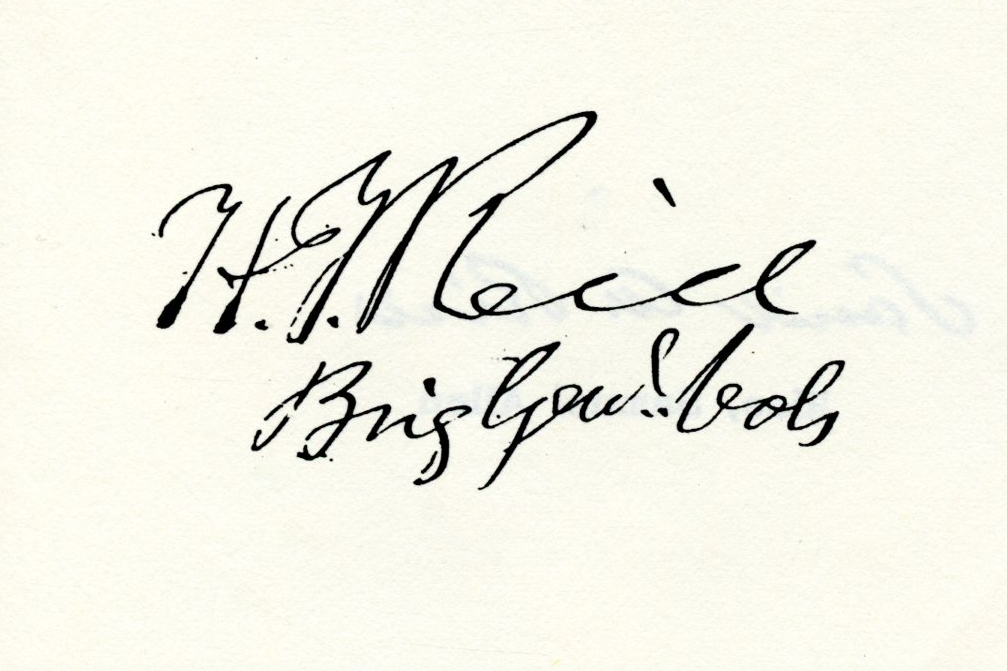 H. T. Reid
Brig Genl Vols